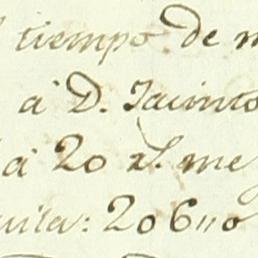 tiempo de
á D. Jacinto
á 20 rl. me
uila: 20611o